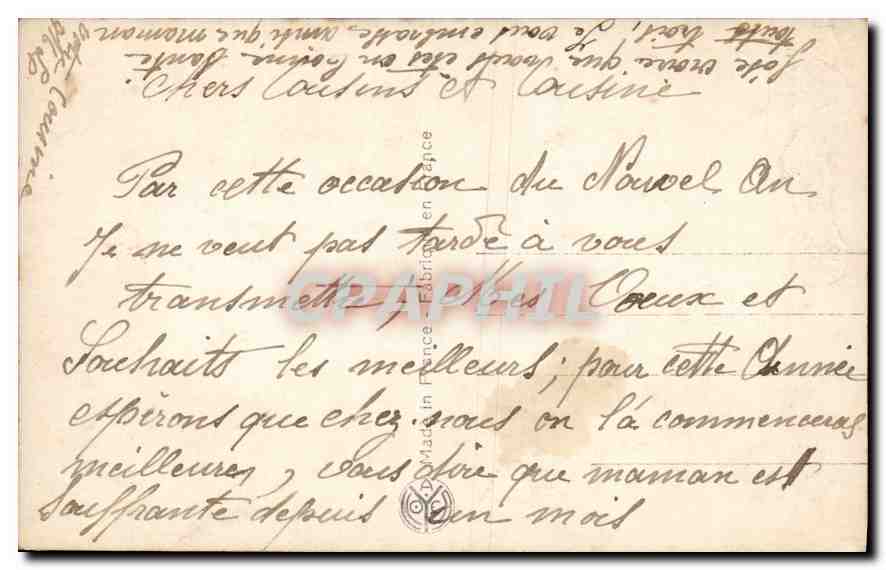 Chers Cousins et Cousine
Par cette occasion du Nouvel An
Je ne veut pas tardé à vous
transmettre, Mes Voeux et
Souhaits les meilleurs; pour cette Année
espérons que chez nous on la commenceras
meilleure, vous dire que maman est
souffrante depuis un mois
J'ose croire que vous êtes en bonne Santé
touts trois, Je vous embrasse ainsi que maman
votre Cousine
Made in France - Fabriqué en France
CPAPHIL